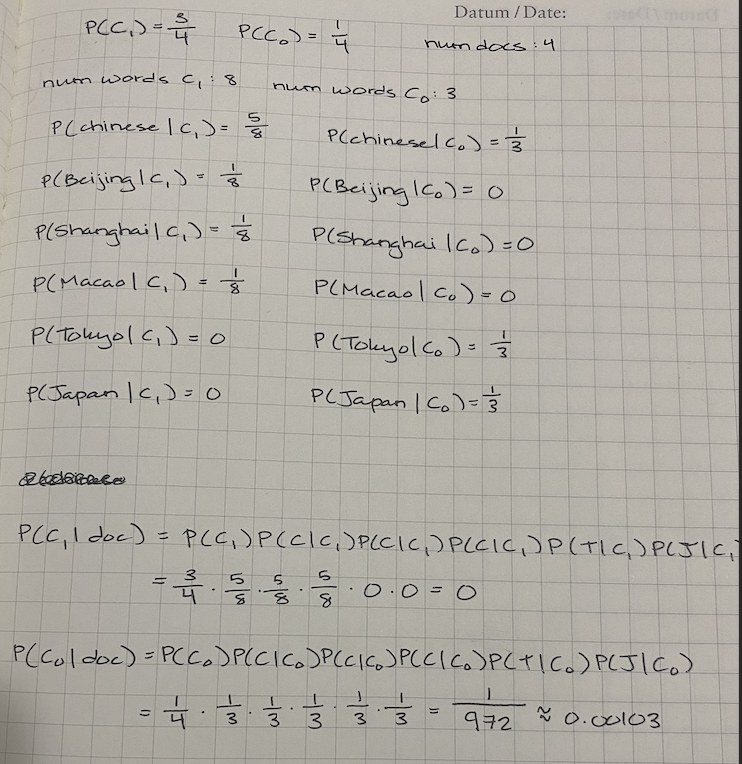 Datum / Date:
P(C₁) = 3/4 P(C₀) = 1/4 num docs : 4
num words C₁ : 8 num words C₀ : 3
P(chinese | C₁) = 5/8 P(chinese | C₀) = 1/3
P(Beijing | C₁) = 1/8 P(Beijing | C₀) = 0
P(Shanghai | C₁) = 1/8 P(Shanghai | C₀) = 0
P(Macao | C₁) = 1/8 P(Macao | C₀) = 0
P(Tokyo | C₁) = 0 P(Tokyo | C₀) = 1/3
P(Japan | C₁) = 0 P(Japan | C₀) = 1/3
P(C₁ | doc) = P(C₁) P(C | C₁) P(C | C₁) P(C | C₁) P(T | C₁) P(J | C₁
= 3/4 · 5/8 · 5/8 · 5/8 · 0 · 0 = 0
P(C₀ | doc) = P(C₀) P(C | C₀) P(C | C₀) P(C | C₀) P(T | C₀) P(J | C₀)
= 1/4 · 1/3 · 1/3 · 1/3 · 1/3 · 1/3 = 1/972 ≈ 0.00103